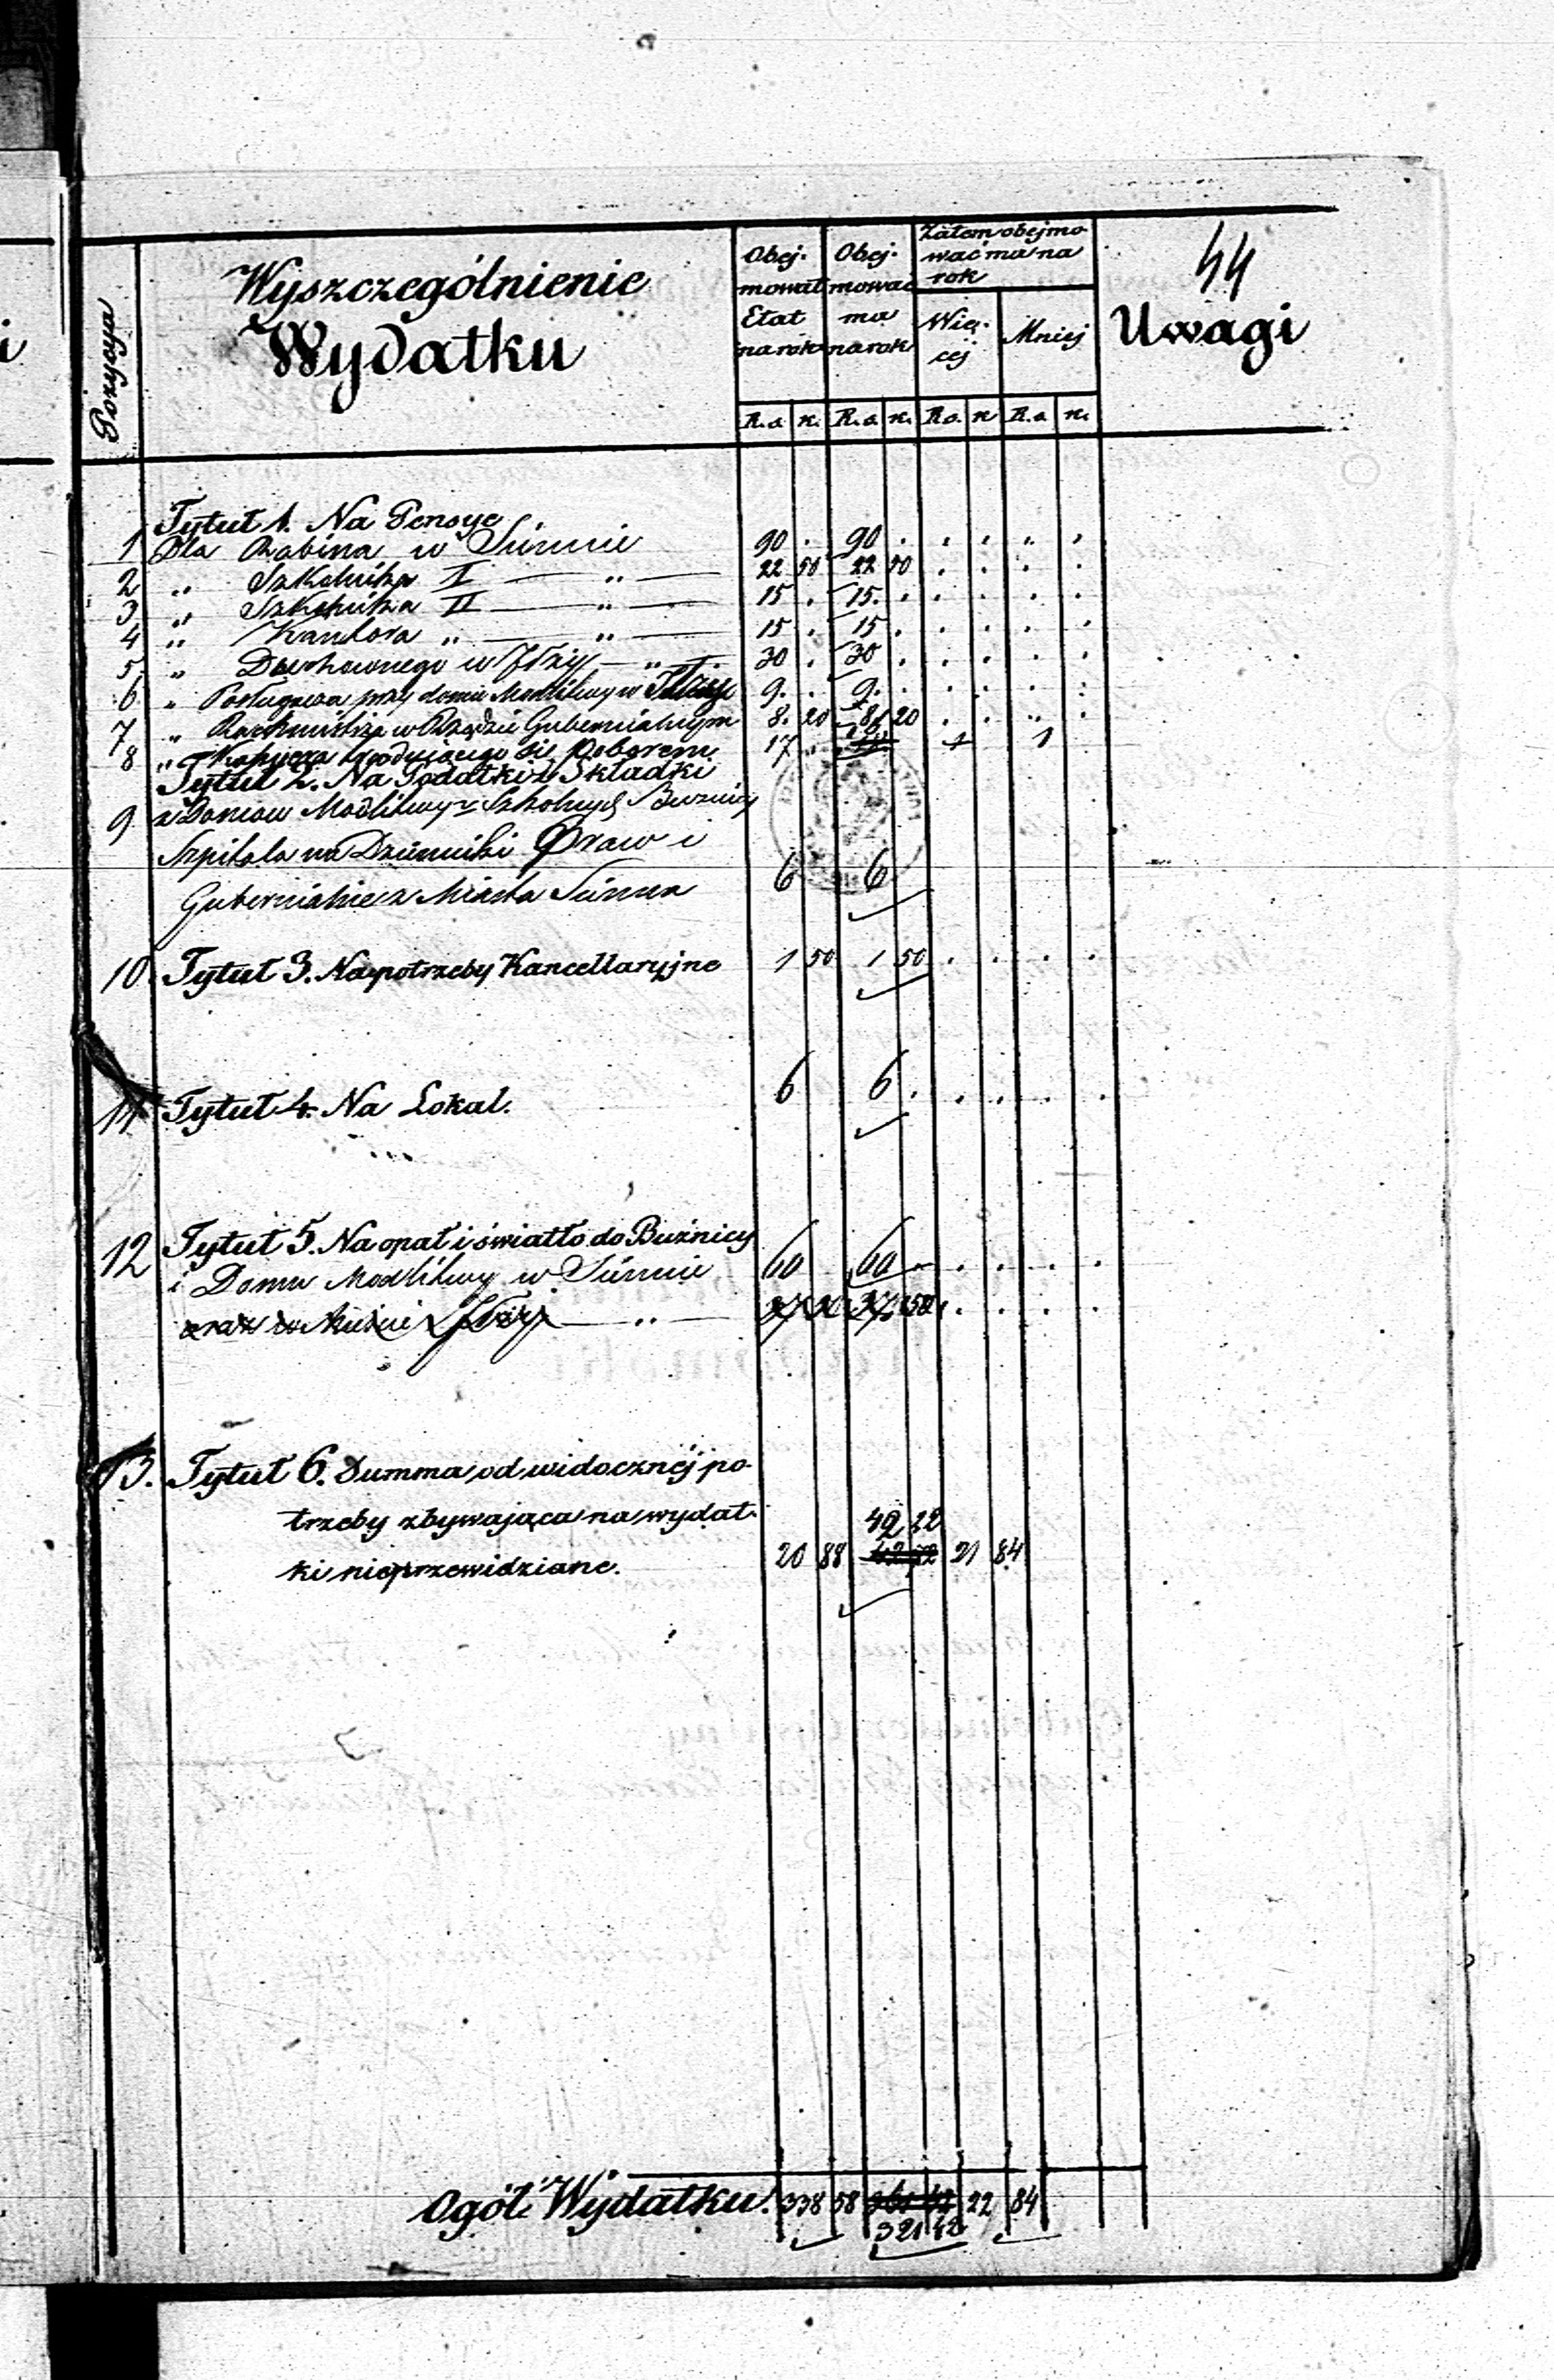 44
Pozycya
Wyszczególnienie
Wydatku
Obej-
mował
Etat
na rok
Obej-
mować
ma
na rok
Zatem obejmo-
wać ma na
rok
Wię-
cej
Mniej
Uwagi
R.s. k. R.s. k. R.s. k. R.s. k.
Tytuł 1. Na Pensye
1 Dla Rabina w 90 . 90 . . . . .
2 " Szkolnika I " 22 50 22 50 . . . .
3 " Szkolnika II " 15 . 15 . . . . .
4 " Kantora " " 15 . 15 . . . . .
5 " Duchownego w Iłży " 30 . 30 . . . . .
6 " Posługacza przy domu Modlitwy w 9 . 9 . . . . .
7 " Rachmistrza w Rządzie Gubernialnym 8 20 8 20 . . . .
8 " trudniącego się poborem 17 1 1
Tytuł 2. Na Podatki i Składki
9 z Domów Modlitwy Szkolnych Bużnicy
Szpitala na Dzienniki Praw i
Gubernialne z Miasta 6 6
10. Tytuł 3. Na potrzeby Kancellaryjne 1 50 1 50 . . . .
11 Tytuł 4. Na Lokal. 6 6 . . . . .
12 Tytuł 5. Na opał i światło do Bużnicy
i Domu Modlitwy w 60 60 . . . .
oraz w Mieście Iłży "
13. Tytuł 6. Summa od widocznéj po-
trzeby zbywająca na wydat-
ki nieprzewidziane. 20 88 42 72 21 84
42 22
Ogół Wydatku. 338 58 361 42 22 84
321 42